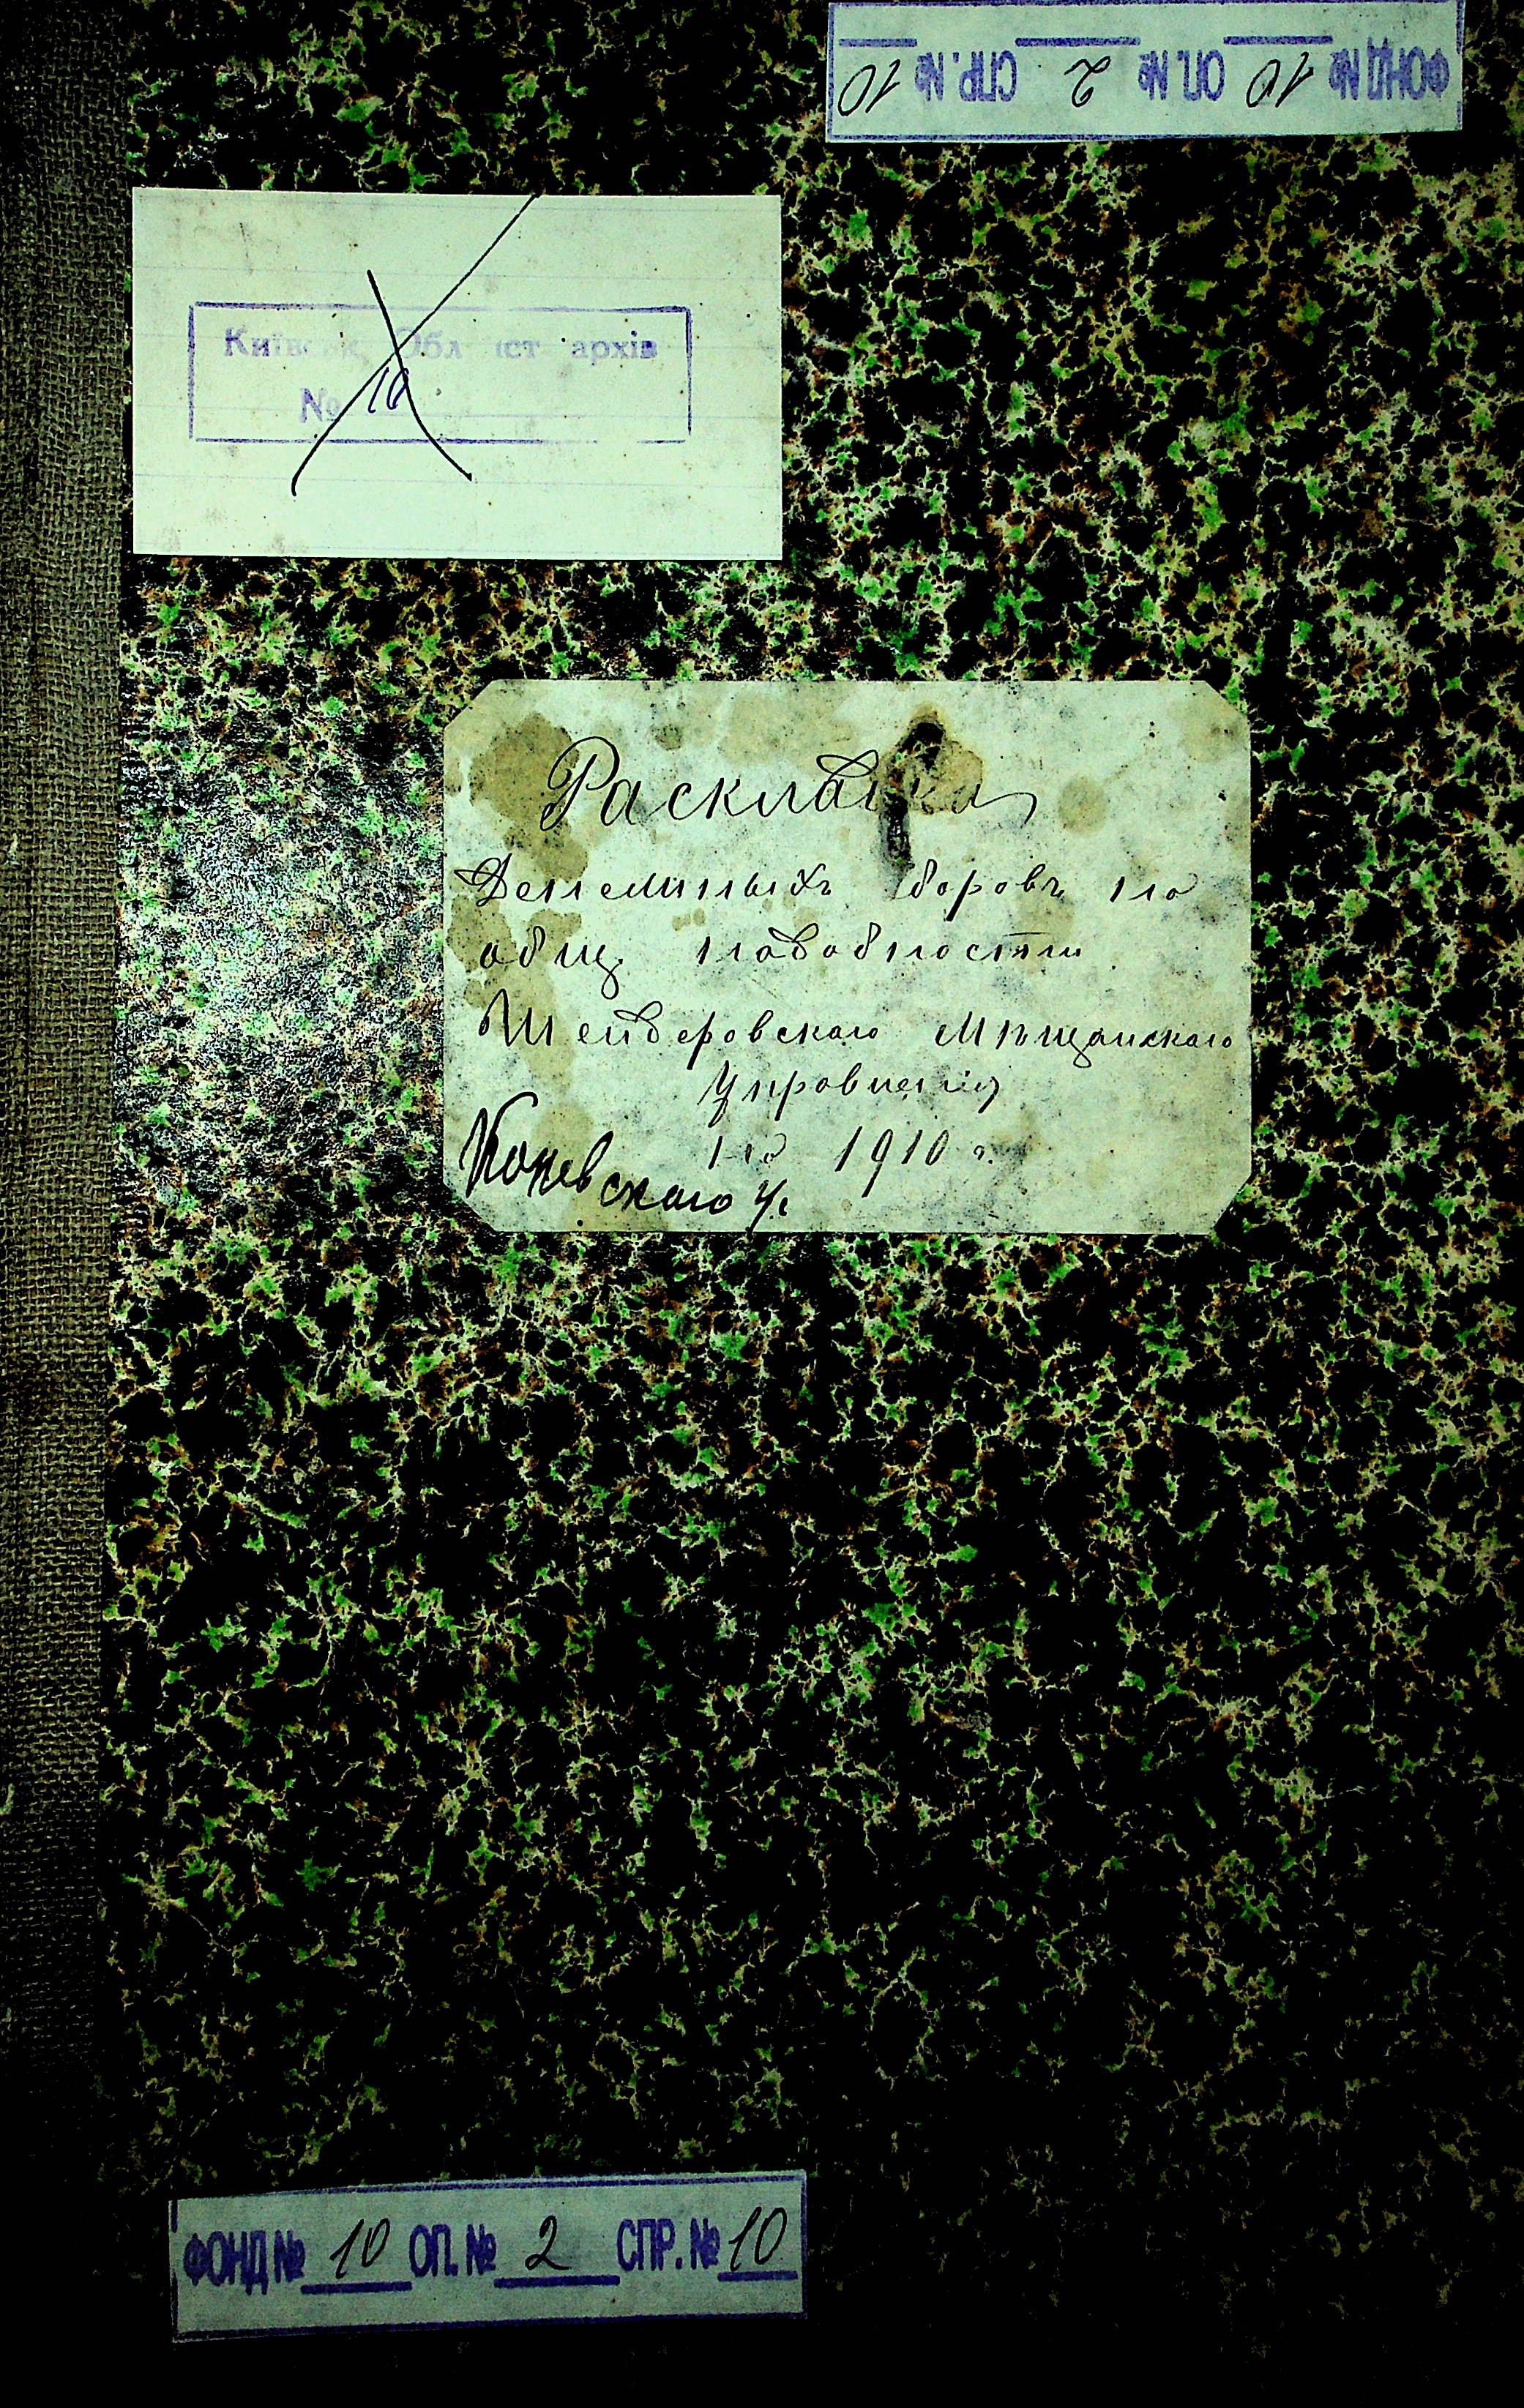 ФОНД № 10 ОП. № 2 СПР. № 10
архів
№ 16
Раскладка
Денежныхъ сборовъ по
общ. надобностям
Шендеровскаго Мѣщанскаго
Управленія
на 1910 г.
Каневскаго у.
ФОНД № 10 ОП. № 2 СПР. № 10